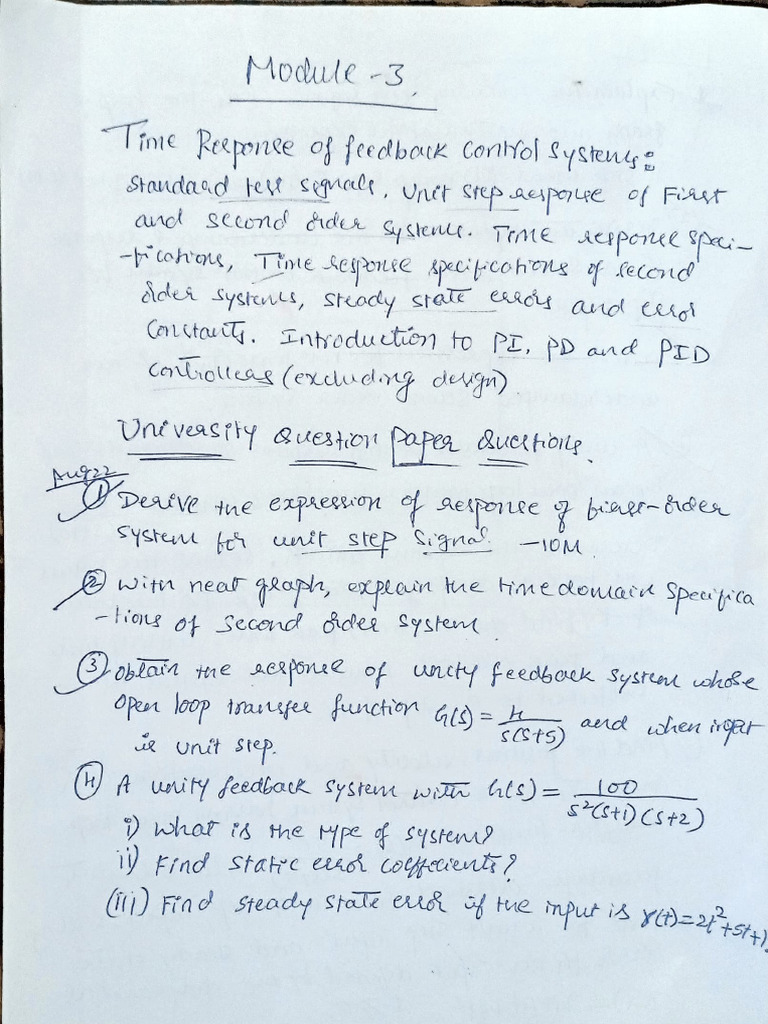 Module -3.
Time Response of feedback control systems:
standard test signals, Unit step response of First
and second order systems. Time response speci-
-fications, Time response specifications of second
order systems, steady state errors and error
constants. Introduction to PI, PD and PID
controllers (excluding design)
University Question Paper Questions.
Aug22
① Derive the expression of response of first-order
system for unit step signal. -10M
② With neat graph, explain the time domain specifica
-tions of second order system.
③ obtain the response of unity feedback system whose
open loop transfer function G(s) = 4/s(s+5) and when input
is unit step.
④ A unity feedback system with G(s) = 100/s²(s+1)(s+2)
i) What is the type of system?
ii) Find static error coefficients?
(iii) Find steady state error if the input is r(t)=2t²+5t+1